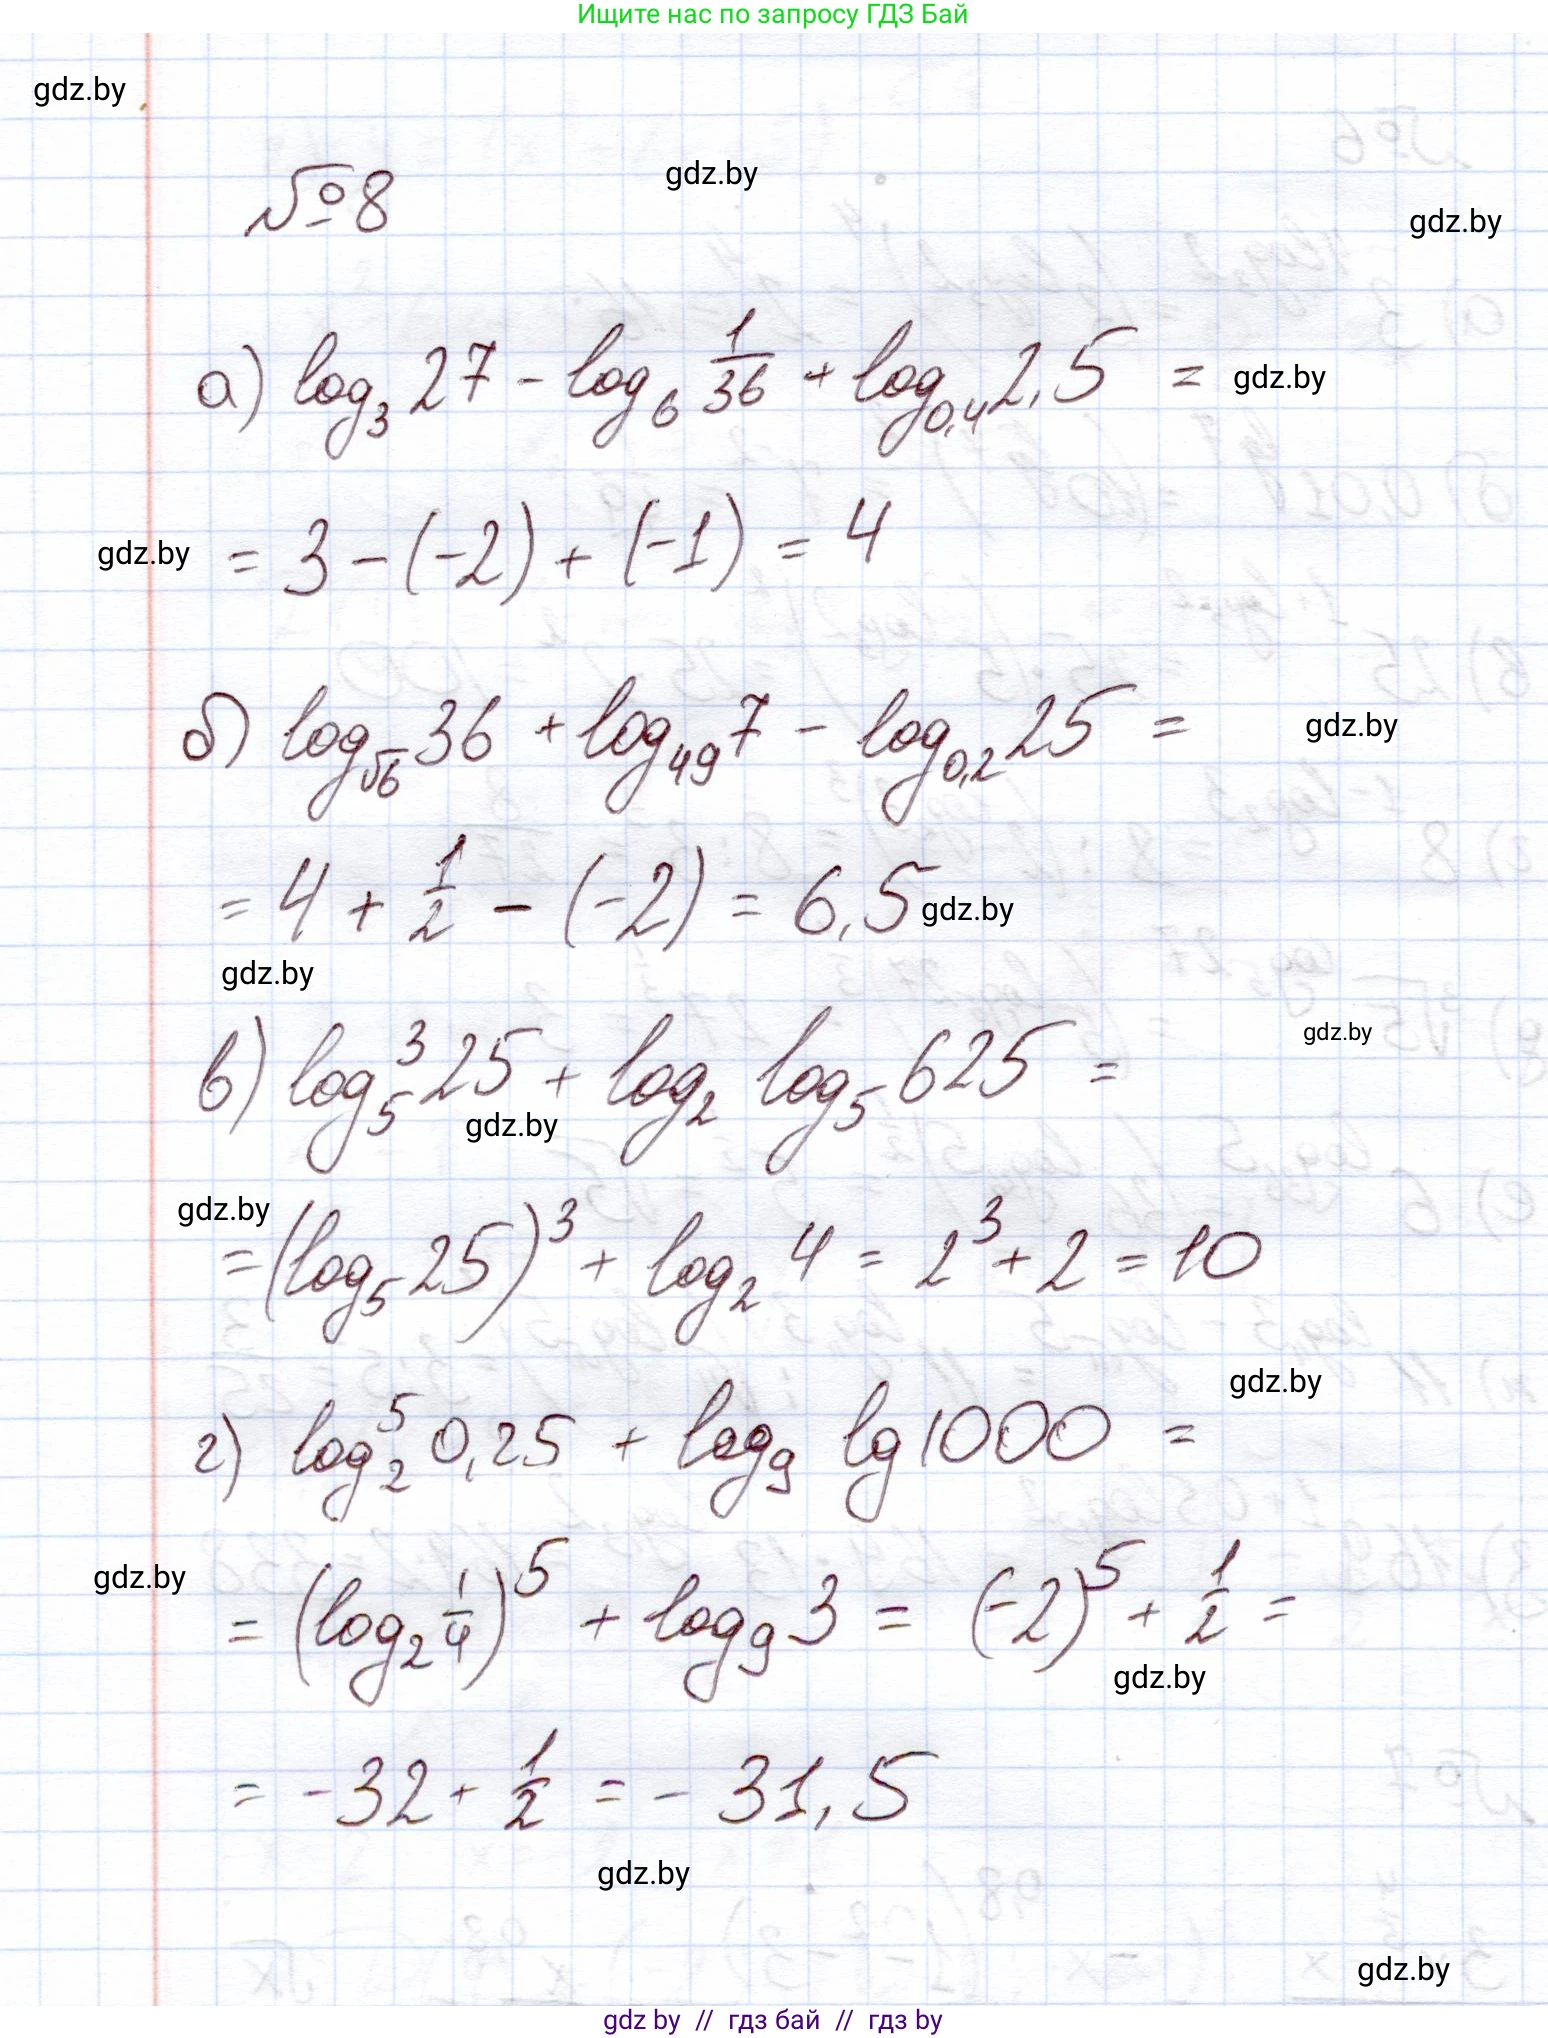 Ищите нас по запросу ГДЗ Бай
gdz.by
№8
gdz.by
gdz.by
а) log₃ 27 - log₆ 1/36 + log₀,₄ 2,5 =
gdz.by
gdz.by
= 3 - (-2) + (-1) = 4
б) log_√6 36 + log₄₉ 7 - log₀,₂ 25 =
gdz.by
= 4 + 1/2 - (-2) = 6,5
gdz.by
gdz.by
в) log₅³ 25 + log₂ log₅ 625 =
gdz.by
gdz.by
gdz.by
= (log₅ 25)³ + log₂ 4 = 2³ + 2 = 10
gdz.by
г) log₂⁵ 0,25 + log₉ lg 1000 =
gdz.by
= (log₂ 1/4)⁵ + log₉ 3 = (-2)⁵ + 1/2 =
gdz.by
= -32 + 1/2 = - 31,5
gdz.by
gdz.by
gdz by // гдз бай // гдз by